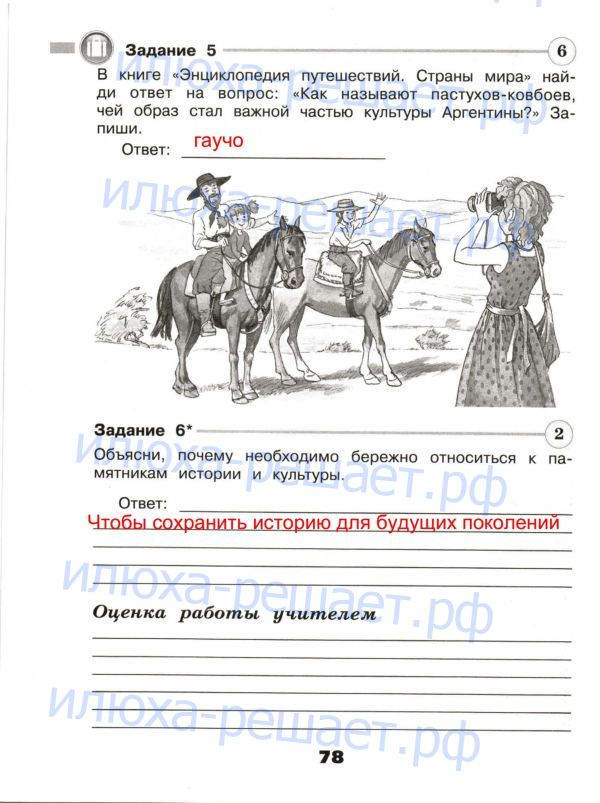 Задание 5
6
В книге «Энциклопедия путешествий. Страны мира» най-
ди ответ на вопрос: «Как называют пастухов-ковбоев,
чей образ стал важной частью культуры Аргентины?» За-
пиши.
гаучо
Ответ:
илюха-решает.рф
илюха-решает.рф
Задание 6*
2
илюха-решает.рф
Объясни, почему необходимо бережно относиться к па-
мятникам истории и культуры.
Ответ:
Чтобы сохранить историю для будущих поколений
илюха-решает.рф
Оценка работы учителем
илюха-решает.рф
78